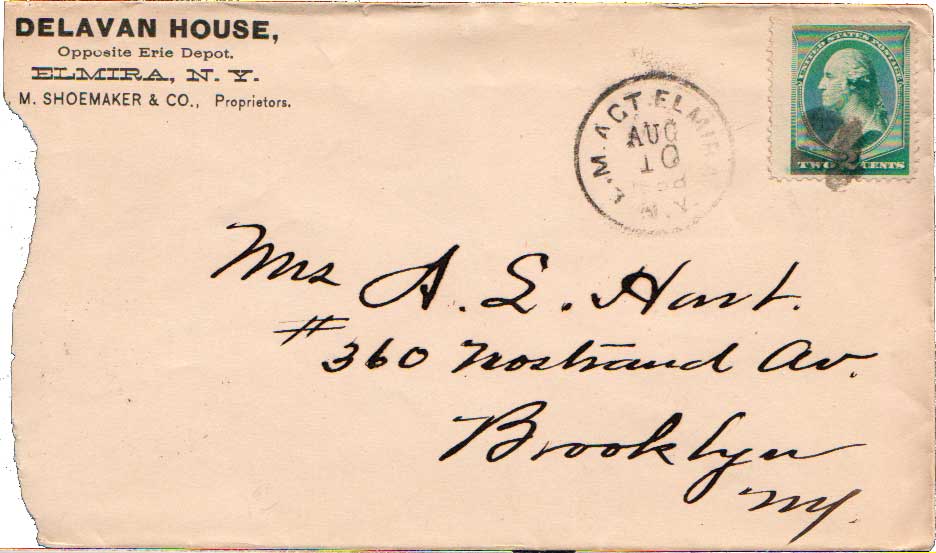 DELAVAN HOUSE,
Opposite Erie Depot.
ELMIRA, N. Y.
M. SHOEMAKER & CO., Proprietors.
UNITED STATES POSTAGE
TWO CENTS
M. AGT. ELMIRA
AUG
10
N.Y.
Mrs A. L. Hart.
# 360 Nostrand Av.
Brooklyn
NY.